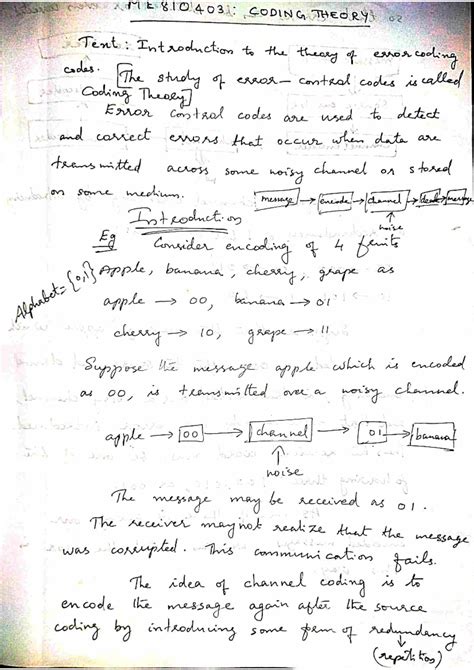 ME810403: CODING THEORY
Text: Introduction to the theory of error coding
codes. [The study of error-control codes is called
Coding Theory]
Error control codes are used to detect
and correct errors that occur when data are
transmitted across some noisy channel or stored
on some medium. message → encode → channel → decode → message
noise
Introduction
Eg Consider encoding of 4 fruits
Alphabet = {0,1} Apple, banana, cherry, grape as
apple → 00, banana → 01
cherry → 10, grape → 11
Suppose the message apple which is encoded
as 00, is transmitted over a noisy channel.
apple → 00 → channel → 01 → banana
noise
The message may be received as 01.
The receiver may not realize that the message
was corrupted. This communication fails.
The idea of channel coding is to
encode the message again after the source
coding by introducing some form of redundancy
(repetition)